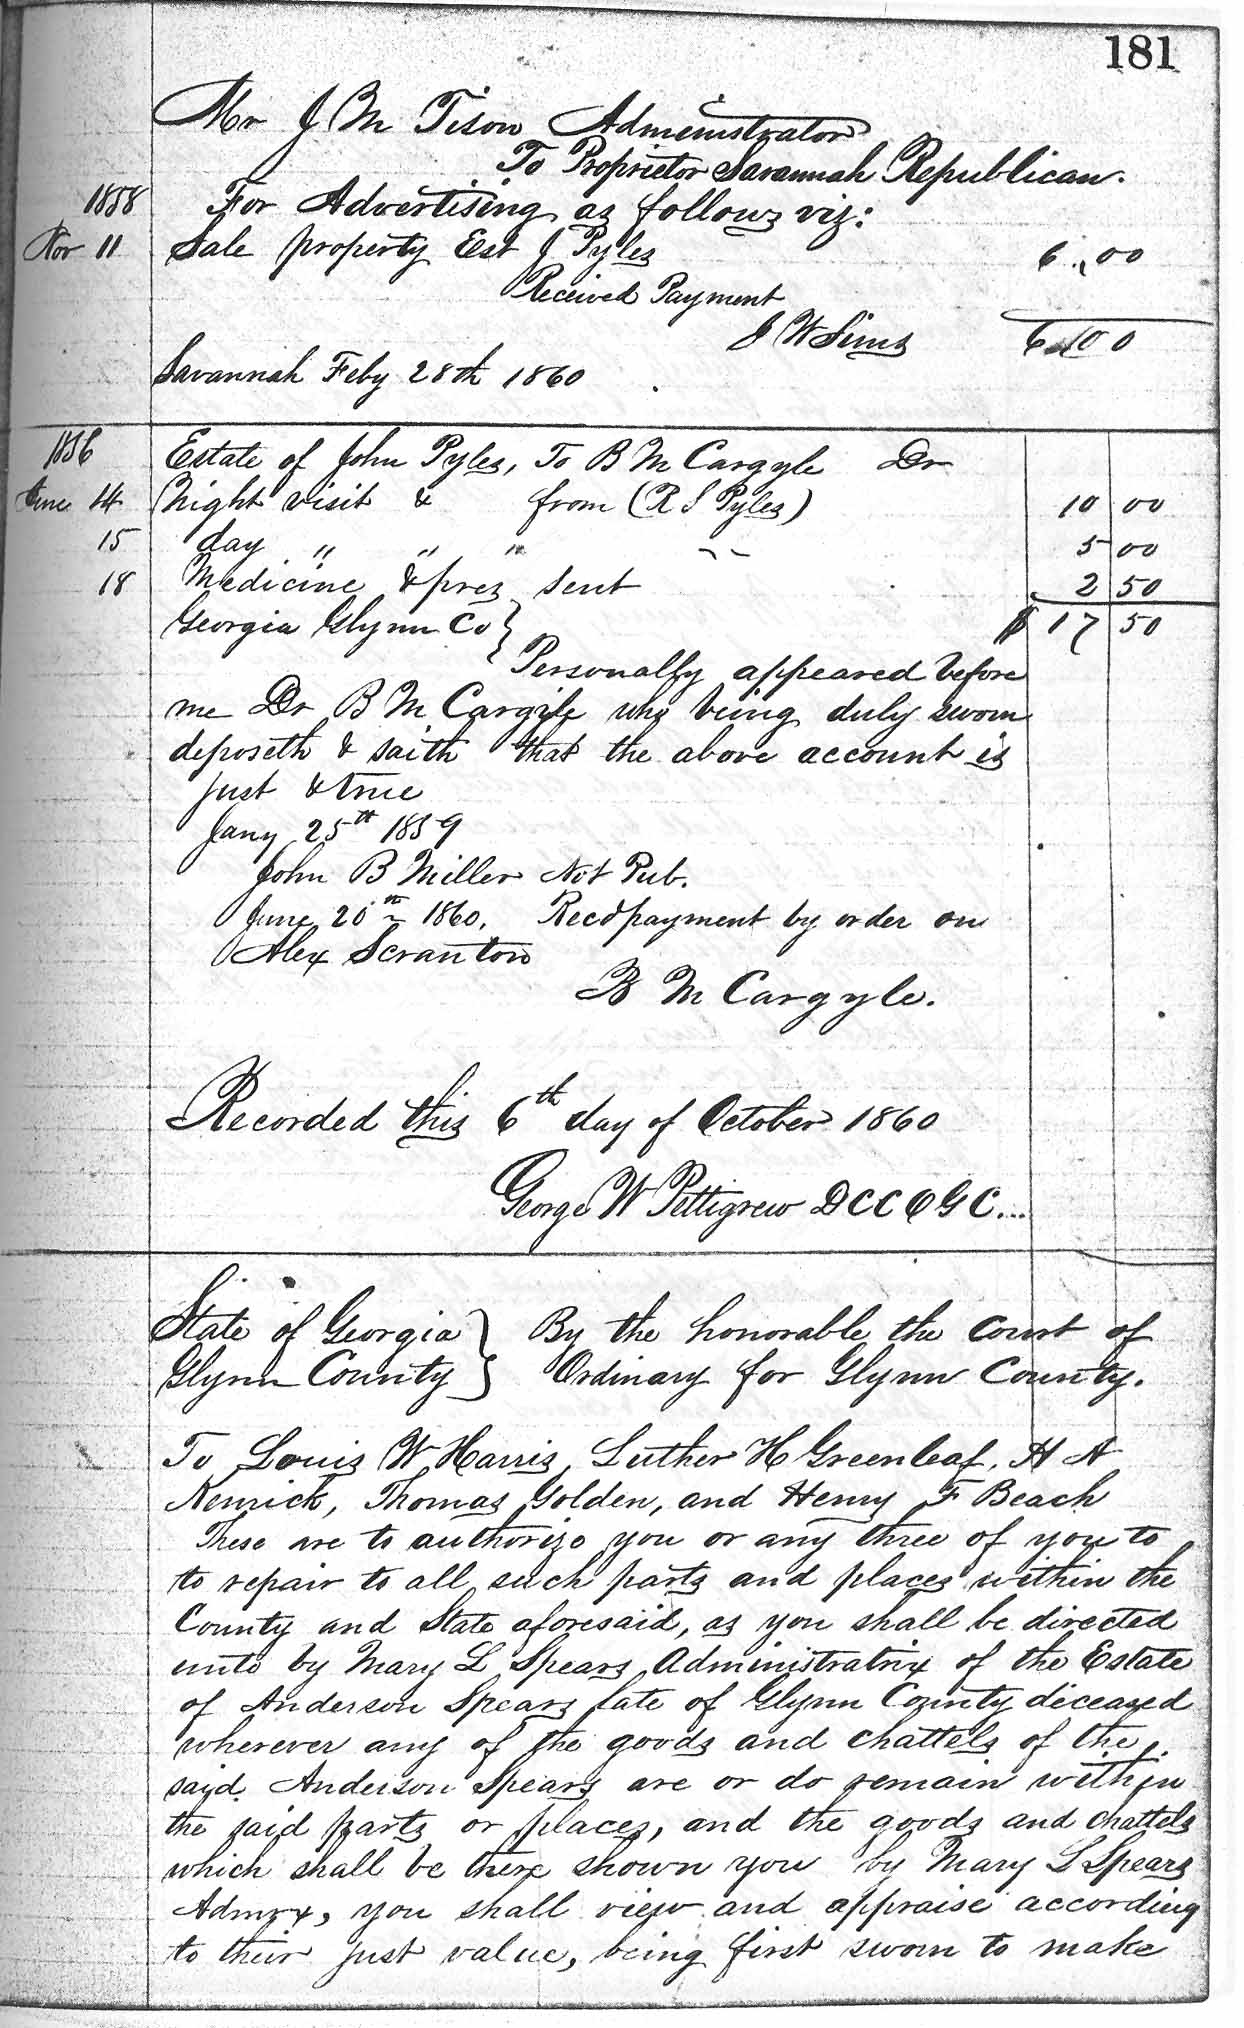 181
Mr J M Tison Administrator
To Proprietor Savannah Republican.
1858 For Advertising as follows viz:
Nov 11 Sale property Est J Pyles 6.00
Received Payment
J W Sims 6.00
Savannah Feby 28th 1860
1856 Estate of John Pyles, To B M Cargyle Dr
June 14 Night visit & from (R S Pyles) 10 00
15 day " " " " 5 00
18 Medicine & prez sent 2 50
Georgia Glynn Co } $ 17 50
Personally appeared before
me Dr B M Cargile who being duly sworn
deposeth & saith that the above account is
just & true
Jany 25th 1859
John B Miller Not Pub.
June 20th 1860. Recd payment by order on
Alex Scranton
B M Cargyle.
Recorded this 6th day of October 1860
George W Pettigrew D C C O G C...
State of Georgia } By the honorable the Court of
Glynn County } Ordinary for Glynn County.
To Louis W Harris, Luther H Greenleaf, H A
Kenrick, Thomas Golden, and Henry F Beach
These are to authorize you or any three of you to
to repair to all such parts and places within the
County and State aforesaid, as you shall be directed
unto by Mary L Spears Administratrix of the Estate
of Anderson Spears late of Glynn County diceased
wherever any of the goods and chattels of the
sayd. Anderson Spears are or do remain within
the said parts or places, and the goods and chattels
which shall be there shown you by Mary L Spears
Admrx, you shall view and appraise according
to their just value, being first sworn to make